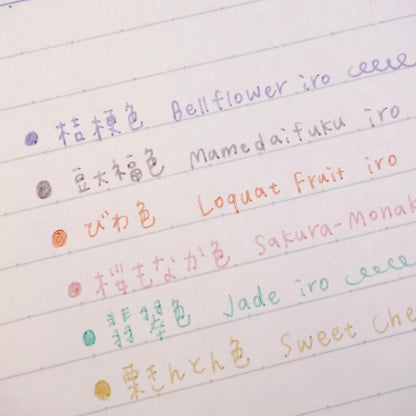 桔梗色 Bellflower iro
豆大福色 Mamedaifuku iro
びわ色 Loquat Fruit iro
桜もなか色 Sakura-Monak
翡翠色 Jade iro
栗きんとん色 Sweet Che